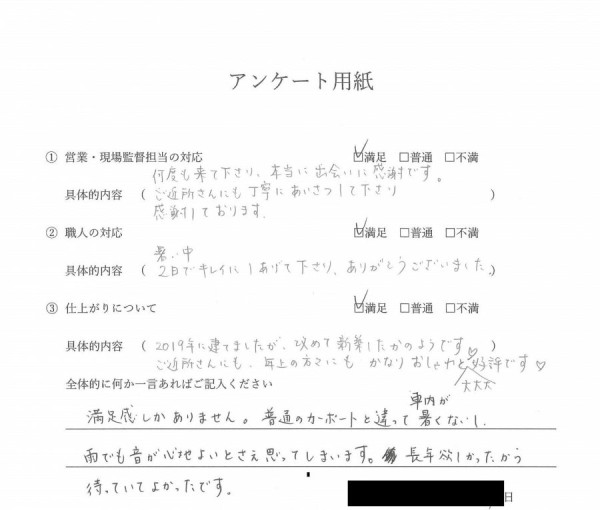 アンケート用紙
① 営業・現場監督担当の対応 ☑満足 □普通 □不満
何度も来て下さり、本当に出会いに感謝です。
具体的内容 ( ご近所さんにも丁寧にあいさつして下さり )
感謝しております。
② 職人の対応 ☑満足 □普通 □不満
暑い中
具体的内容 ( 2日でキレイにしあげて下さり、ありがとうございました。)
③ 仕上がりについて ☑満足 □普通 □不満
具体的内容 ( 2019年に建てましたが、改めて新築したかのようです♡ )
ご近所さんにも、年上の方々にも かなりおしゃれと好評です♡
大大大
全体的に何か一言あればご記入ください
車内が
満足感しかありません。普通のカーポートと違って暑くないし、
雨でも音が心地よいとさえ思ってしまいます。長年欲しかったから
待っていてよかったです。
日